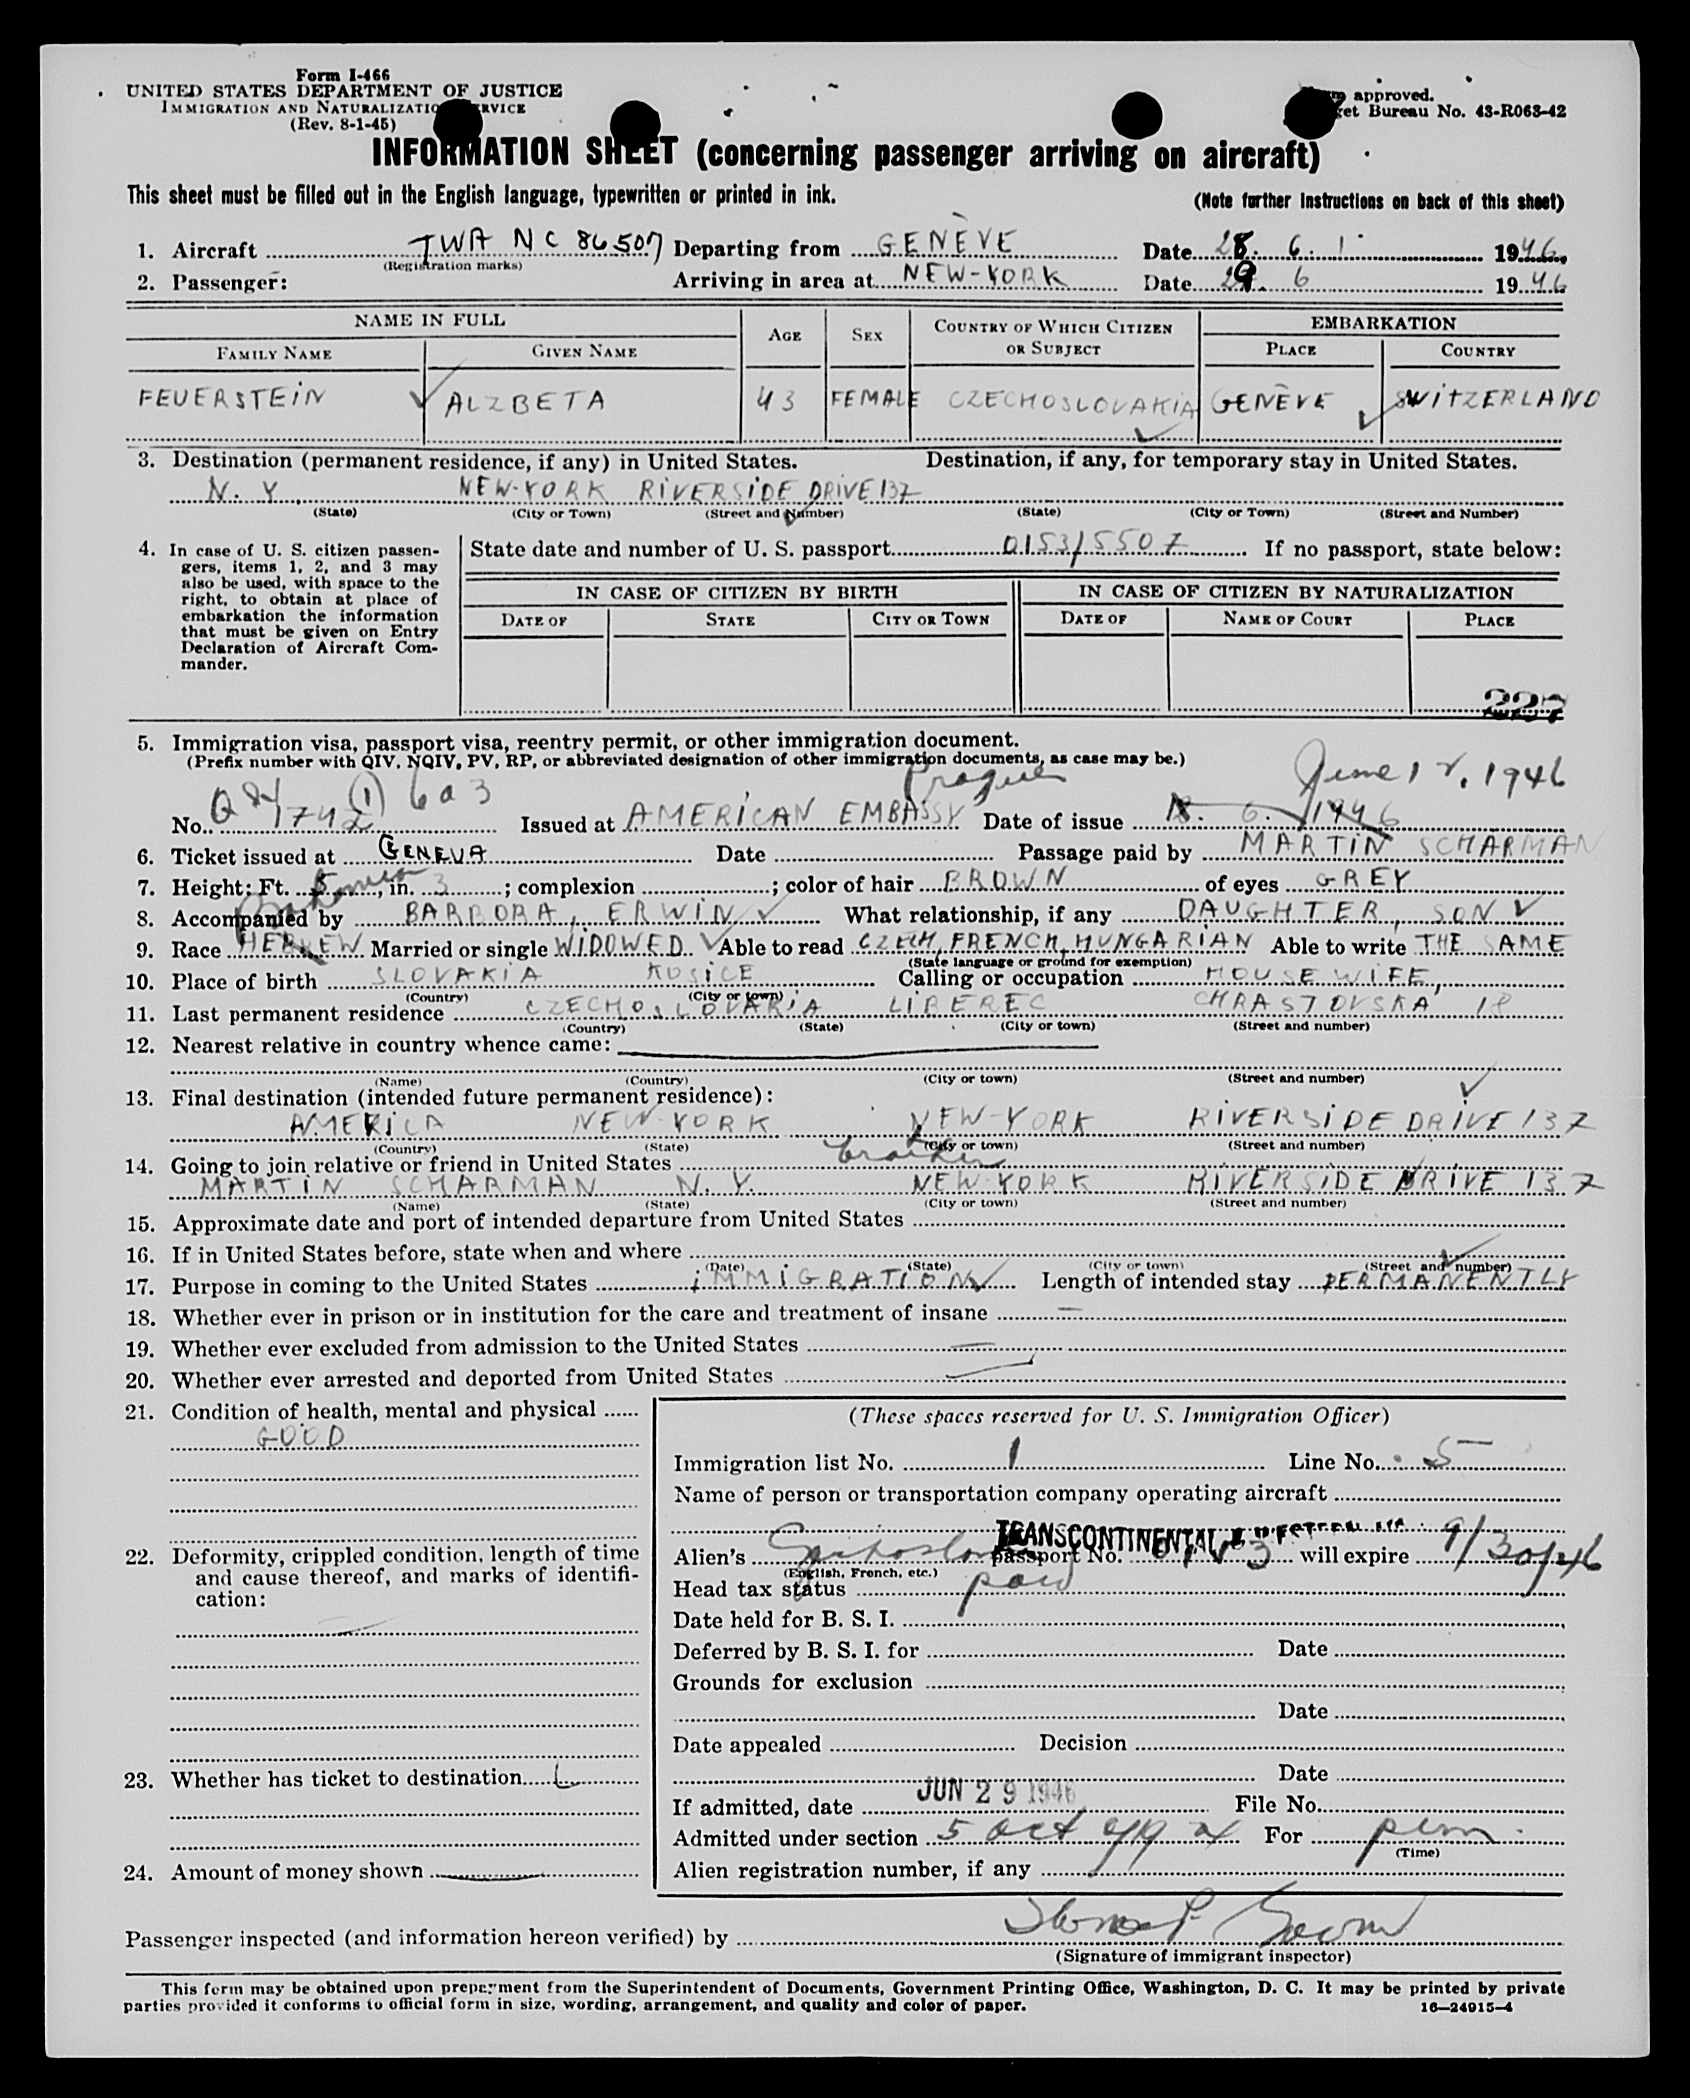 Form I-466
UNITED STATES DEPARTMENT OF JUSTICE
IMMIGRATION AND NATURALIZATION SERVICE
(Rev. 8-1-45)
approved.
Bureau No. 43-R063-42
INFORMATION SHEET (concerning passenger arriving on aircraft)
This sheet must be filled out in the English language, typewritten or printed in ink.
(Note further instructions on back of this sheet)
1. Aircraft TWA NC 86507 Departing from GENÈVE Date 28. 6. 1946
(Registration marks)
2. Passenger: Arriving in area at NEW-YORK Date 29. 6 1946
NAME IN FULL AGE SEX COUNTRY OF WHICH CITIZEN OR SUBJECT EMBARKATION
FAMILY NAME GIVEN NAME PLACE COUNTRY
FEUERSTEIN ALZBETA 43 FEMALE CZECHOSLOVAKIA GENÈVE SWITZERLAND
3. Destination (permanent residence, if any) in United States. Destination, if any, for temporary stay in United States.
N. Y. NEW-YORK RIVERSIDE DRIVE 137
(State) (City or Town) (Street and Number) (State) (City or Town) (Street and Number)
4. In case of U. S. citizen passengers, items 1, 2, and 3 may also be used, with space to the right, to obtain at place of embarkation the information that must be given on Entry Declaration of Aircraft Commander.
State date and number of U. S. passport 0153/5507 If no passport, state below:
IN CASE OF CITIZEN BY BIRTH IN CASE OF CITIZEN BY NATURALIZATION
DATE OF STATE CITY OR TOWN DATE OF NAME OF COURT PLACE
227
5. Immigration visa, passport visa, reentry permit, or other immigration document.
(Prefix number with QIV, NQIV, PV, RP, or abbreviated designation of other immigration documents, as case may be.)
Prague June 12, 1946
No. 1742 (1) 6 a 3 Issued at AMERICAN EMBASSY Date of issue 6. 1946
6. Ticket issued at GENEVA Date Passage paid by MARTIN SCHARMAN
7. Height: Ft. 5, in. 3; complexion ; color of hair BROWN of eyes GREY
8. Accompanied by BARBORA, ERWIN What relationship, if any DAUGHTER, SON
9. Race HEBREW Married or single WIDOWED Able to read CZECH, FRENCH, HUNGARIAN Able to write THE SAME
(State language or ground for exemption)
10. Place of birth SLOVAKIA KOSICE Calling or occupation HOUSEWIFE,
(Country) (City or town)
11. Last permanent residence CZECHOSLOVAKIA LIBEREC CHRASTOVSKA 18
(Country) (State) (City or town) (Street and number)
12. Nearest relative in country whence came:
(Name) (Country) (City or town) (Street and number)
13. Final destination (intended future permanent residence):
AMERICA NEW-YORK NEW-YORK RIVERSIDE DRIVE 137
(Country) (State) (City or town) (Street and number)
14. Going to join relative or friend in United States brother
MARTIN SCHARMAN N. Y. NEW-YORK RIVERSIDE DRIVE 137
(Name) (State) (City or town) (Street and number)
15. Approximate date and port of intended departure from United States
16. If in United States before, state when and where
(Date) (State) (City or town) (Street and number)
17. Purpose in coming to the United States IMMIGRATION Length of intended stay PERMANENTLY
18. Whether ever in prison or in institution for the care and treatment of insane —
19. Whether ever excluded from admission to the United States —
20. Whether ever arrested and deported from United States —
21. Condition of health, mental and physical
GOOD
22. Deformity, crippled condition, length of time and cause thereof, and marks of identification:
—
23. Whether has ticket to destination
24. Amount of money shown —
(These spaces reserved for U. S. Immigration Officer)
Immigration list No. 1 Line No. 5
Name of person or transportation company operating aircraft
TRANSCONTINENTAL & WESTERN AIR
Alien's passport No. will expire 9/30/46
(English, French, etc.)
Head tax status paid
Date held for B. S. I.
Deferred by B. S. I. for Date
Grounds for exclusion
Date
Date appealed Decision
Date
If admitted, date JUN 29 1946 File No.
Admitted under section 5 act of 1924 For perm.
(Time)
Alien registration number, if any
Passenger inspected (and information hereon verified) by
(Signature of immigrant inspector)
This form may be obtained upon prepayment from the Superintendent of Documents, Government Printing Office, Washington, D. C. It may be printed by private
parties provided it conforms to official form in size, wording, arrangement, and quality and color of paper. 16—24915-4